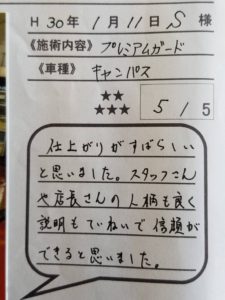 H 30年 1月 11日 S 様
《施術内容》プレミアムガード
《車種》 キャンバス
★★
★★★ 5 / 5
仕上がりがすばらしい
と思いました。スタッフさん
や店長さんの人柄も良く
説明もていねいで信頼が
できると思いました。